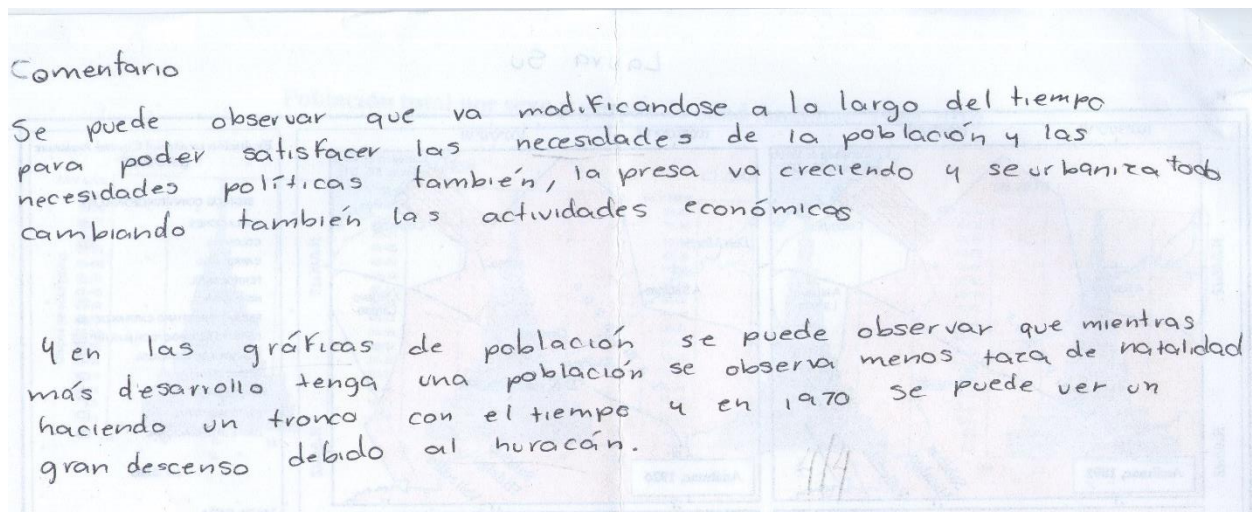 Comentario
Se puede observar que va modificandose a lo largo del tiempo
para poder satisfacer las necesidades de la población y las
necesidades políticas también, la presa va creciendo y se urbaniza todo
cambiando también las actividades económicas
y en las gráficas de población se puede observar que mientras
más desarrollo tenga una población se observa menos taza de natalidad
haciendo un tronco con el tiempo y en 1970 se puede ver un
gran descenso debido al huracán.